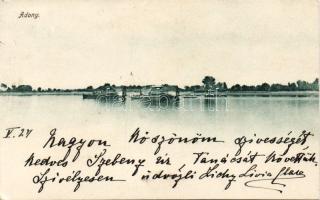 Adony.
V. 24
Nagyon köszönöm szivességét
kedves Szebeny úr Tanácsát követtük
Szivélyesen üdvözli Zichy Livia